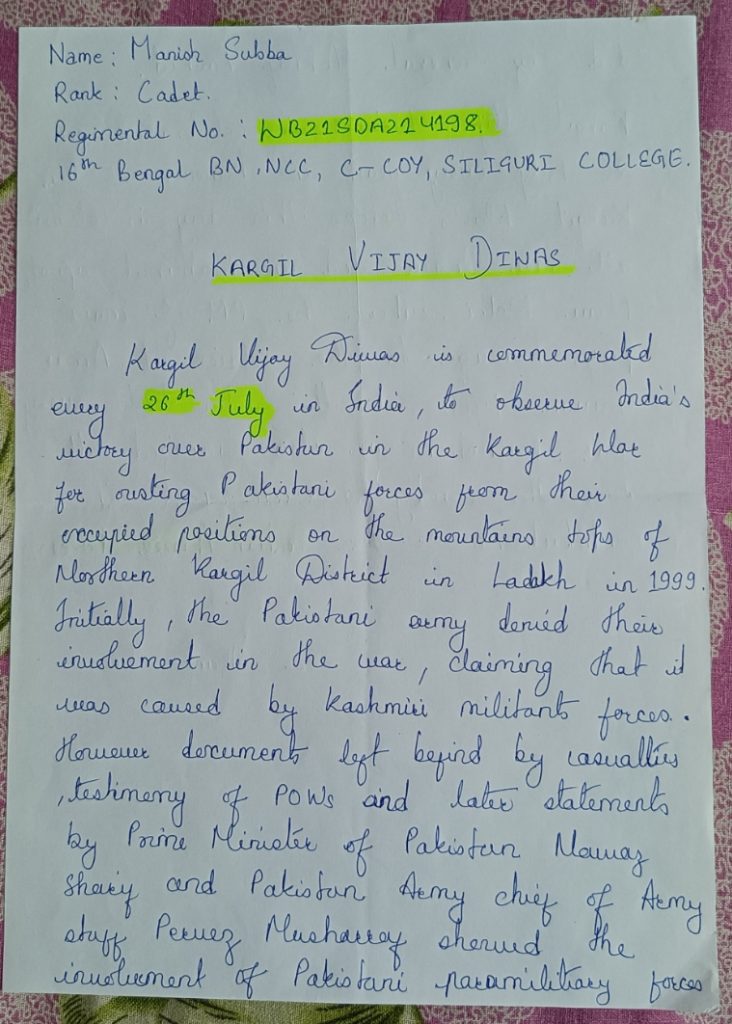 Name : Manish Subba
Rank : Cadet.
Regimental No. : WB21SDA214198.
16th Bengal BN, NCC, C-COY, SILIGURI COLLEGE.
KARGIL VIJAY DIWAS
Kargil Vijay Diwas is commemorated
every 26th July in India, to observe India's
victory over Pakistan in the Kargil War
for ousting Pakistani forces from their
occupied positions on the mountains tops of
Northern Kargil District in Ladakh in 1999.
Initially, the Pakistani army denied their
involvement in the war, claiming that it
was caused by Kashmiri militants forces.
However documents left behind by casualties
, testimony of POWs and later statements
by Prime Minister of Pakistan Nawaz
Sharif and Pakistan Army chief of Army
staff Pervez Musharraf showed the
involvement of Pakistani paramilitiary forces